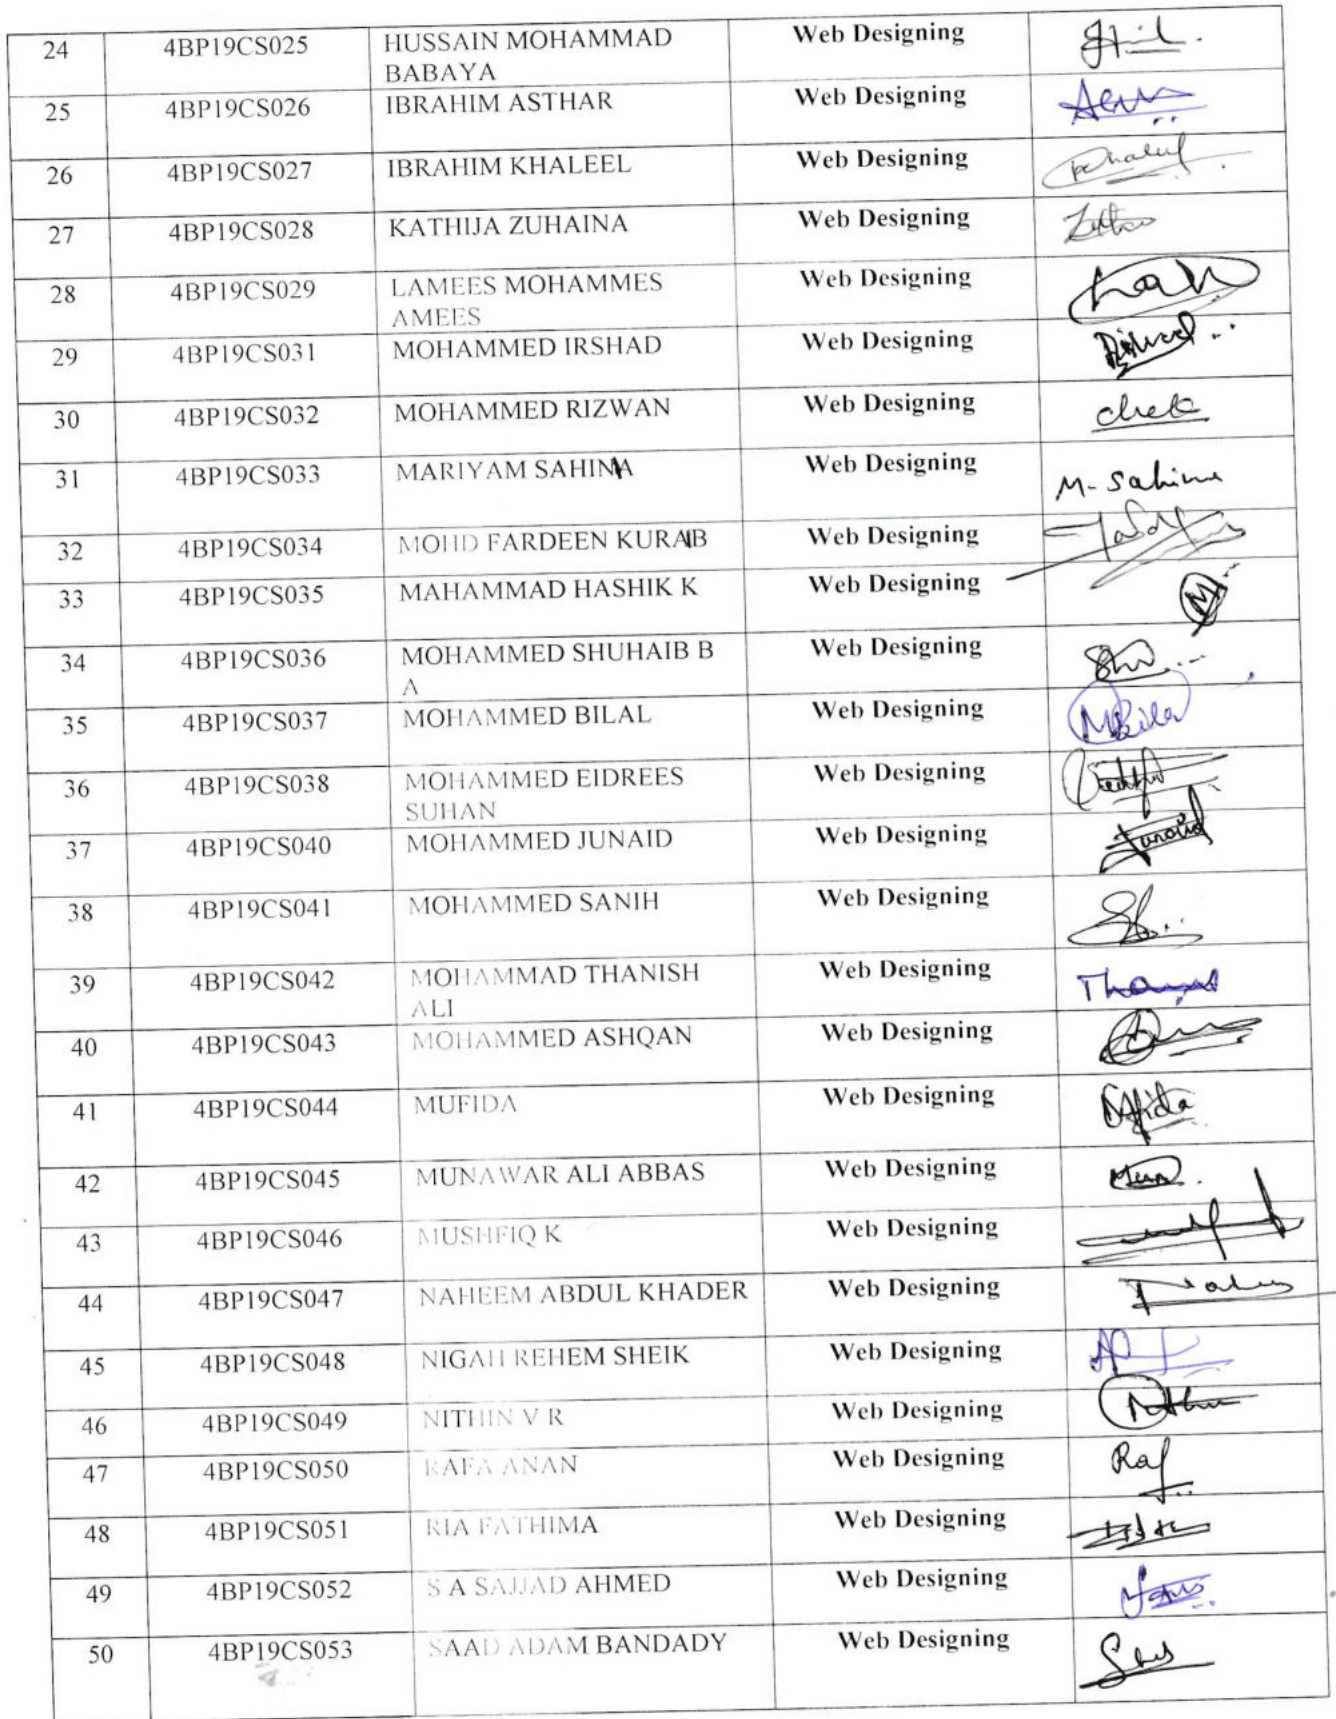 24 4BP19CS025 HUSSAIN MOHAMMAD Web Designing
BABAYA
25 4BP19CS026 IBRAHIM ASTHAR Web Designing
26 4BP19CS027 IBRAHIM KHALEEL Web Designing
27 4BP19CS028 KATHIJA ZUHAINA Web Designing
28 4BP19CS029 LAMEES MOHAMMES Web Designing
AMEES
29 4BP19CS031 MOHAMMED IRSHAD Web Designing
30 4BP19CS032 MOHAMMED RIZWAN Web Designing
31 4BP19CS033 MARIYAM SAHINA Web Designing M- Sahina
32 4BP19CS034 MOHD FARDEEN KURAIB Web Designing
33 4BP19CS035 MAHAMMAD HASHIK K Web Designing M
34 4BP19CS036 MOHAMMED SHUHAIB B Web Designing
A
35 4BP19CS037 MOHAMMED BILAL Web Designing
36 4BP19CS038 MOHAMMED EIDREES Web Designing
SUHAN
37 4BP19CS040 MOHAMMED JUNAID Web Designing Junaid
38 4BP19CS041 MOHAMMED SANIH Web Designing
39 4BP19CS042 MOHAMMAD THANISH Web Designing
ALI
40 4BP19CS043 MOHAMMED ASHQAN Web Designing
41 4BP19CS044 MUFIDA Web Designing
42 4BP19CS045 MUNAWAR ALI ABBAS Web Designing
43 4BP19CS046 MUSHFIQ K Web Designing
44 4BP19CS047 NAHEEM ABDUL KHADER Web Designing
45 4BP19CS048 NIGAH REHEM SHEIK Web Designing
46 4BP19CS049 NITHIN V R Web Designing
47 4BP19CS050 RAFA ANAN Web Designing Raf
48 4BP19CS051 RIA FATHIMA Web Designing
49 4BP19CS052 S A SAJJAD AHMED Web Designing
50 4BP19CS053 SAAD ADAM BANDADY Web Designing